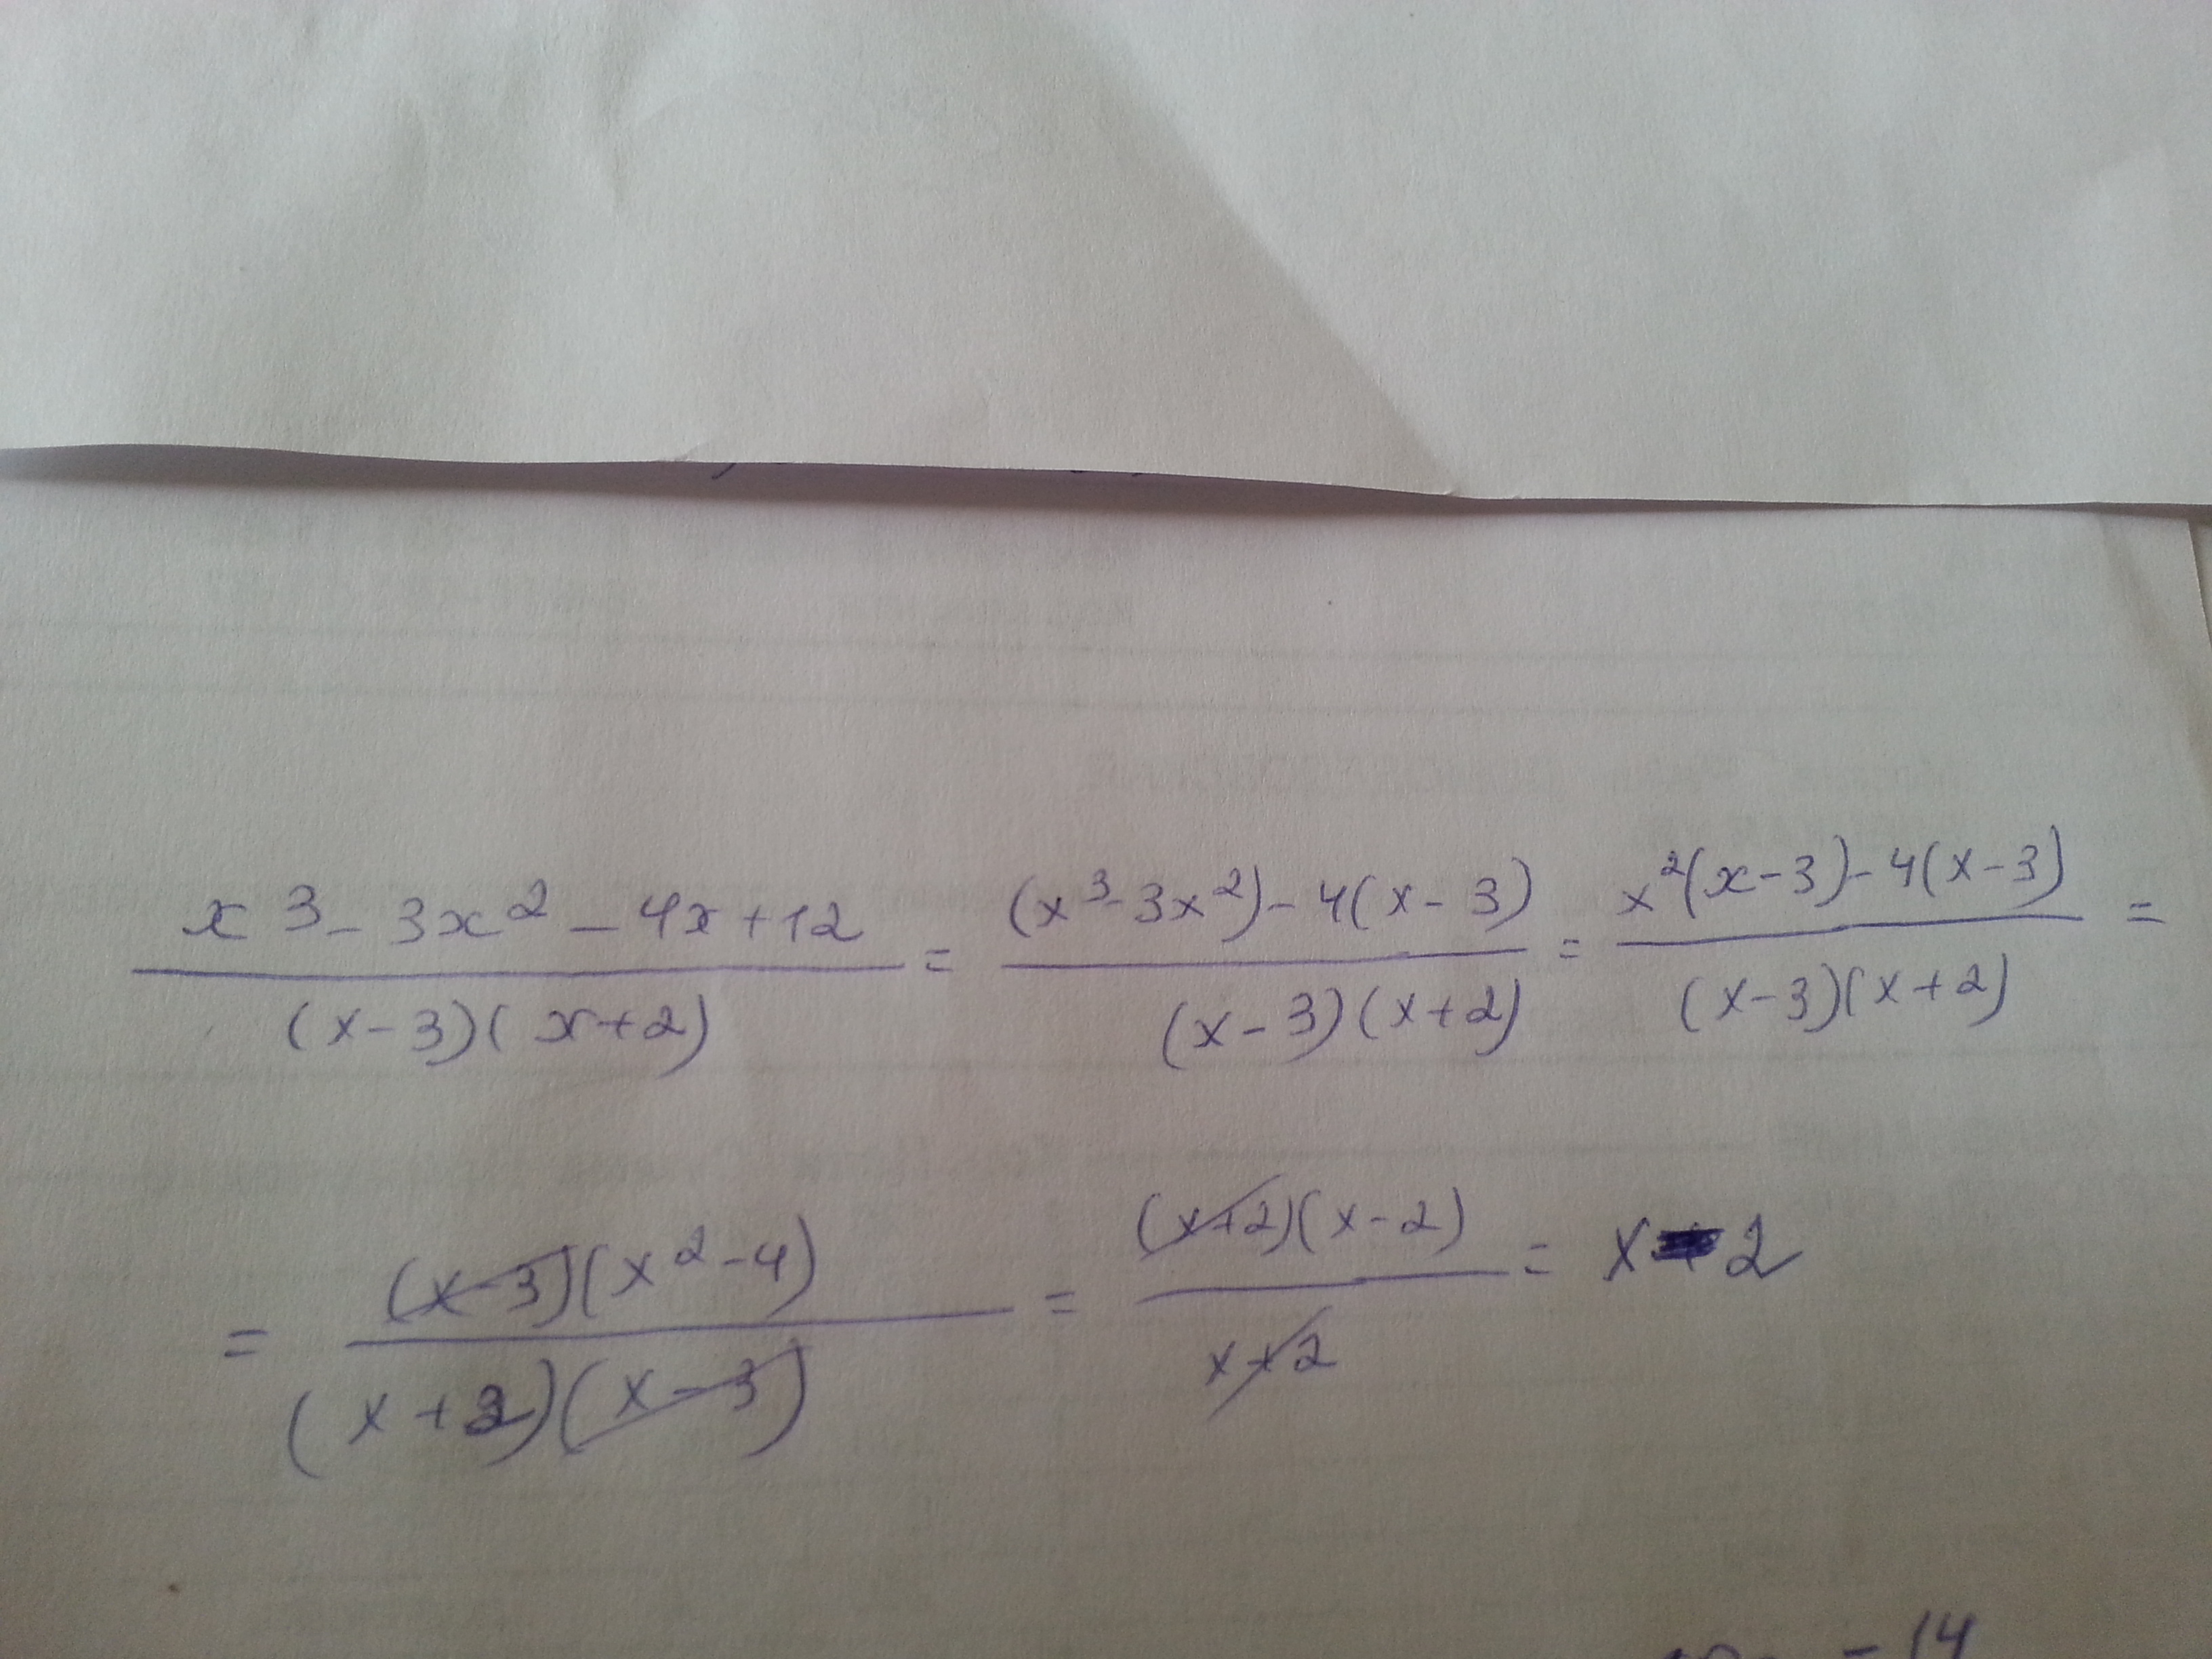 x³ - 3x² - 4x + 12 / (x-3)(x+2) = (x³-3x²) - 4(x-3) / (x-3)(x+2) = x²(x-3) - 4(x-3) / (x-3)(x+2) =
= (x-3)(x²-4) / (x+2)(x-3) = (x+2)(x-2) / x+2 = x-2
- 14